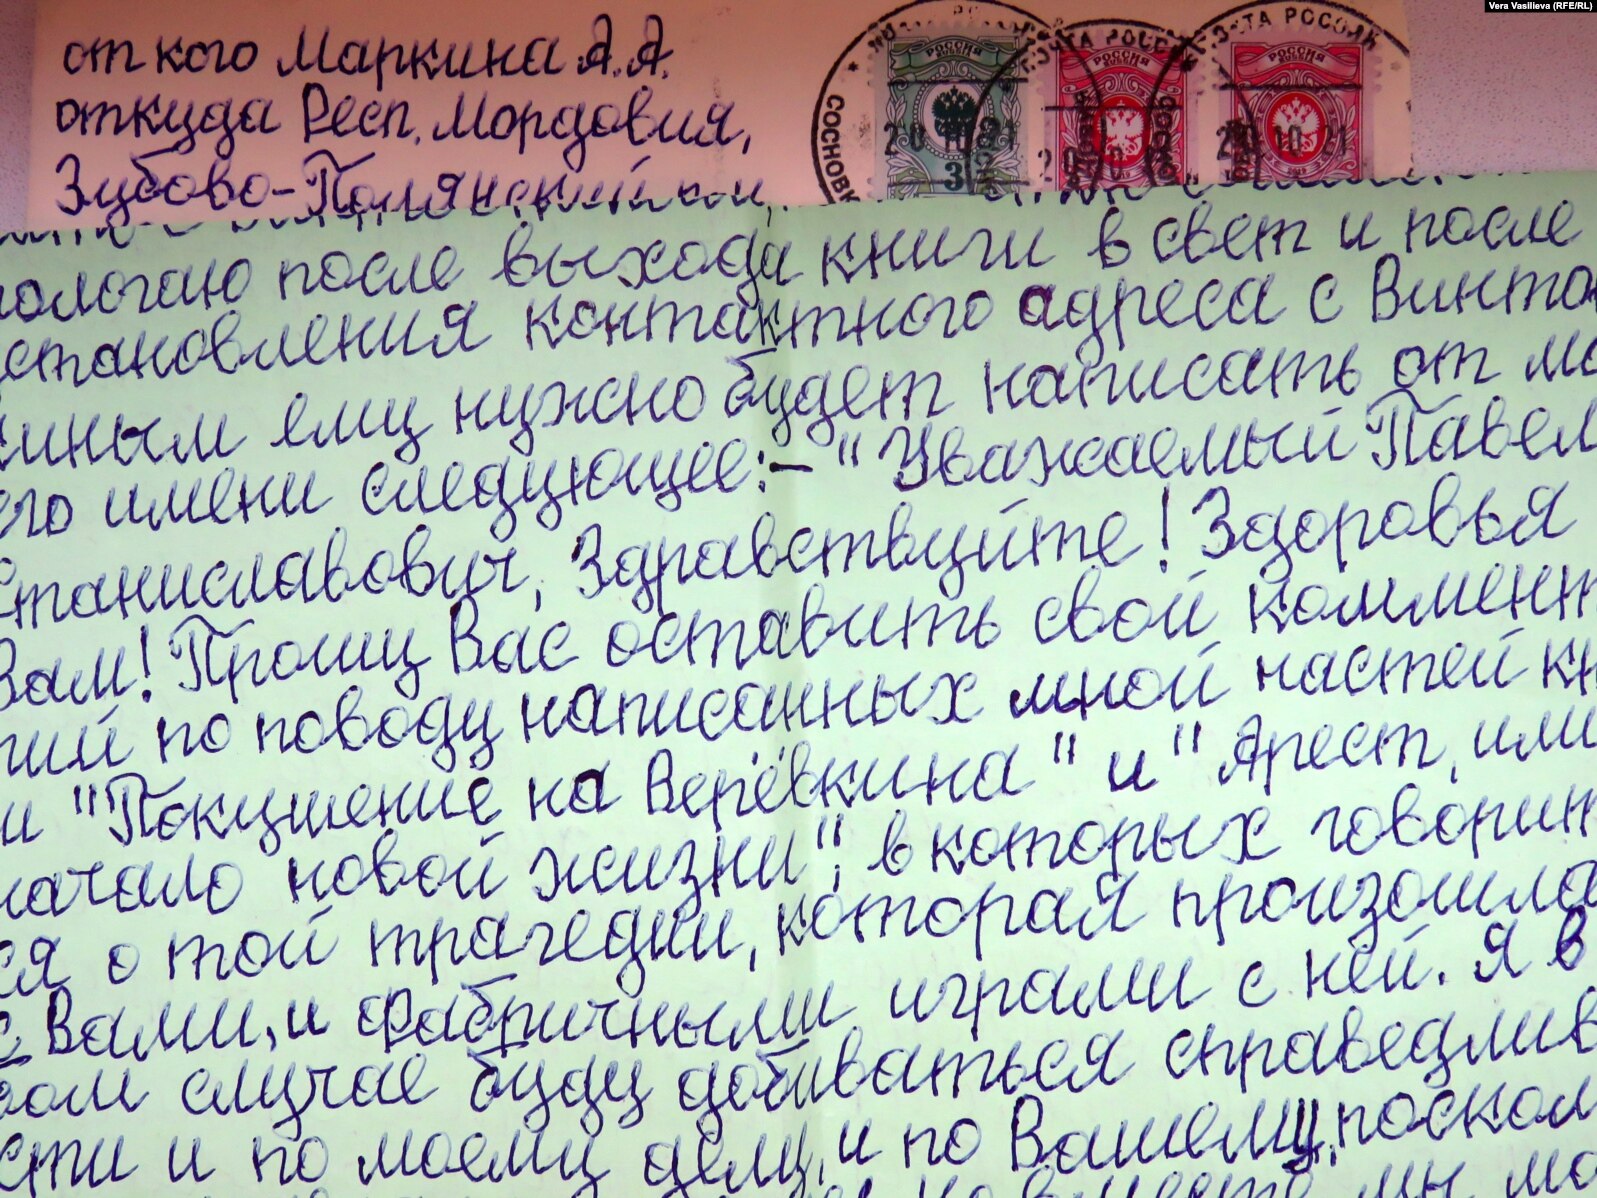 Vera Vasilieva (RFE/RL)
от кого Маркина А.А.
откуда Респ. Мордовия,
Зубово-Полянский
ПОЧТА РОССИИ
РОССИЯ
RUSSIA
РОССИЯ
RUSSIA
РОССИЯ
RUSSIA
20 10 21
пологаю после выхода книги в свет и после
становления контактного адреса с Винто
иным ему нужно будет написать от мо
его имени следующее:- "Уважаемый Павел
Станиславович, Здравствуйте! Здоровья
Вам! Прошу Вас оставить свой коммент
рий по поводу написанных мной частей кн
и "Покушение на Верёвкина" и "Арест, или
начало новой жизни", в которых говорит
ся о той трагедии, которая произошла
с Вами, и фабричными играми с ней. Я в
бом случае буду добиваться справедлив
сти и по моему делу, и по Вашему, поскол